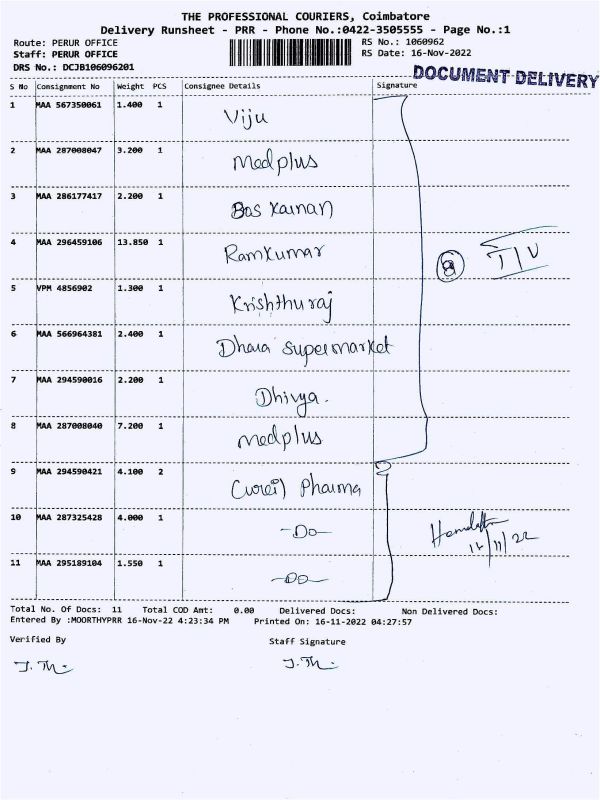 THE PROFESSIONAL COURIERS, Coimbatore
Delivery Runsheet - PRR - Phone No.:0422-3505555 - Page No.:1
Route: PERUR OFFICE RS No.: 1060962
Staff: PERUR OFFICE RS Date: 16-Nov-2022
DRS No.: DCJB106096201
DOCUMENT DELIVERY
S No Consignment No Weight PCS Consignee Details Signature
1 MAA 567350061 1.400 1 Viju
2 MAA 287008047 3.200 1 Medplus
3 MAA 286177417 2.200 1
4 MAA 296459106 13.850 1 Ramkumar
5 VPM 4856902 1.300 1 Krishthuraj
6 MAA 566964381 2.400 1 Dhara Supermarket
7 MAA 294590016 2.200 1 Dhivya.
8 MAA 287008040 7.200 1 Medplus
9 MAA 294590421 4.100 2 Pharma
10 MAA 287325428 4.000 1 -Do-
11 MAA 295189104 1.550 1 -Do-
Total No. Of Docs: 11 Total COD Amt: 0.00 Delivered Docs: Non Delivered Docs:
Entered By :MOORTHYPRR 16-Nov-22 4:23:34 PM Printed On: 16-11-2022 04:27:57
Verified By Staff Signature